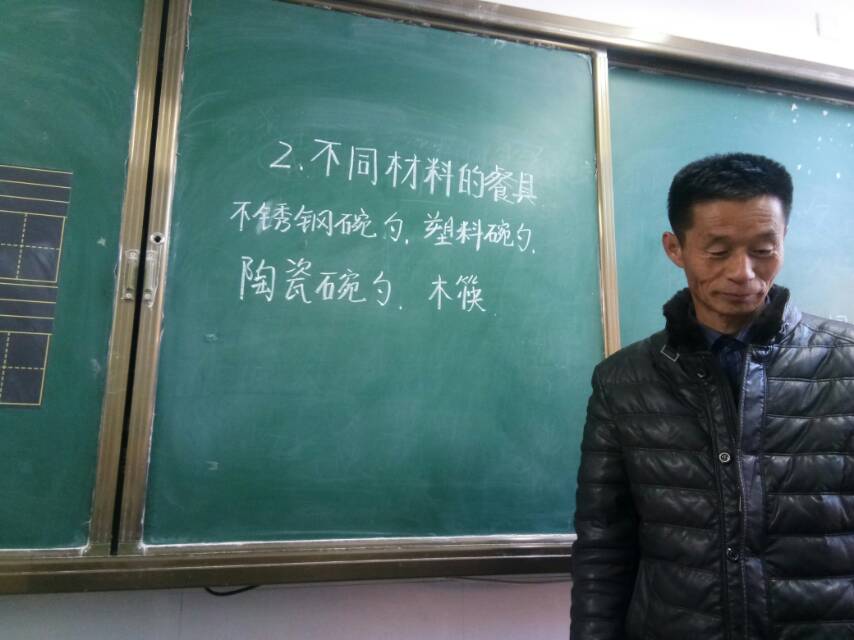 2、不同材料的餐具
不锈钢碗勺、塑料碗勺、
陶瓷碗勺、木筷